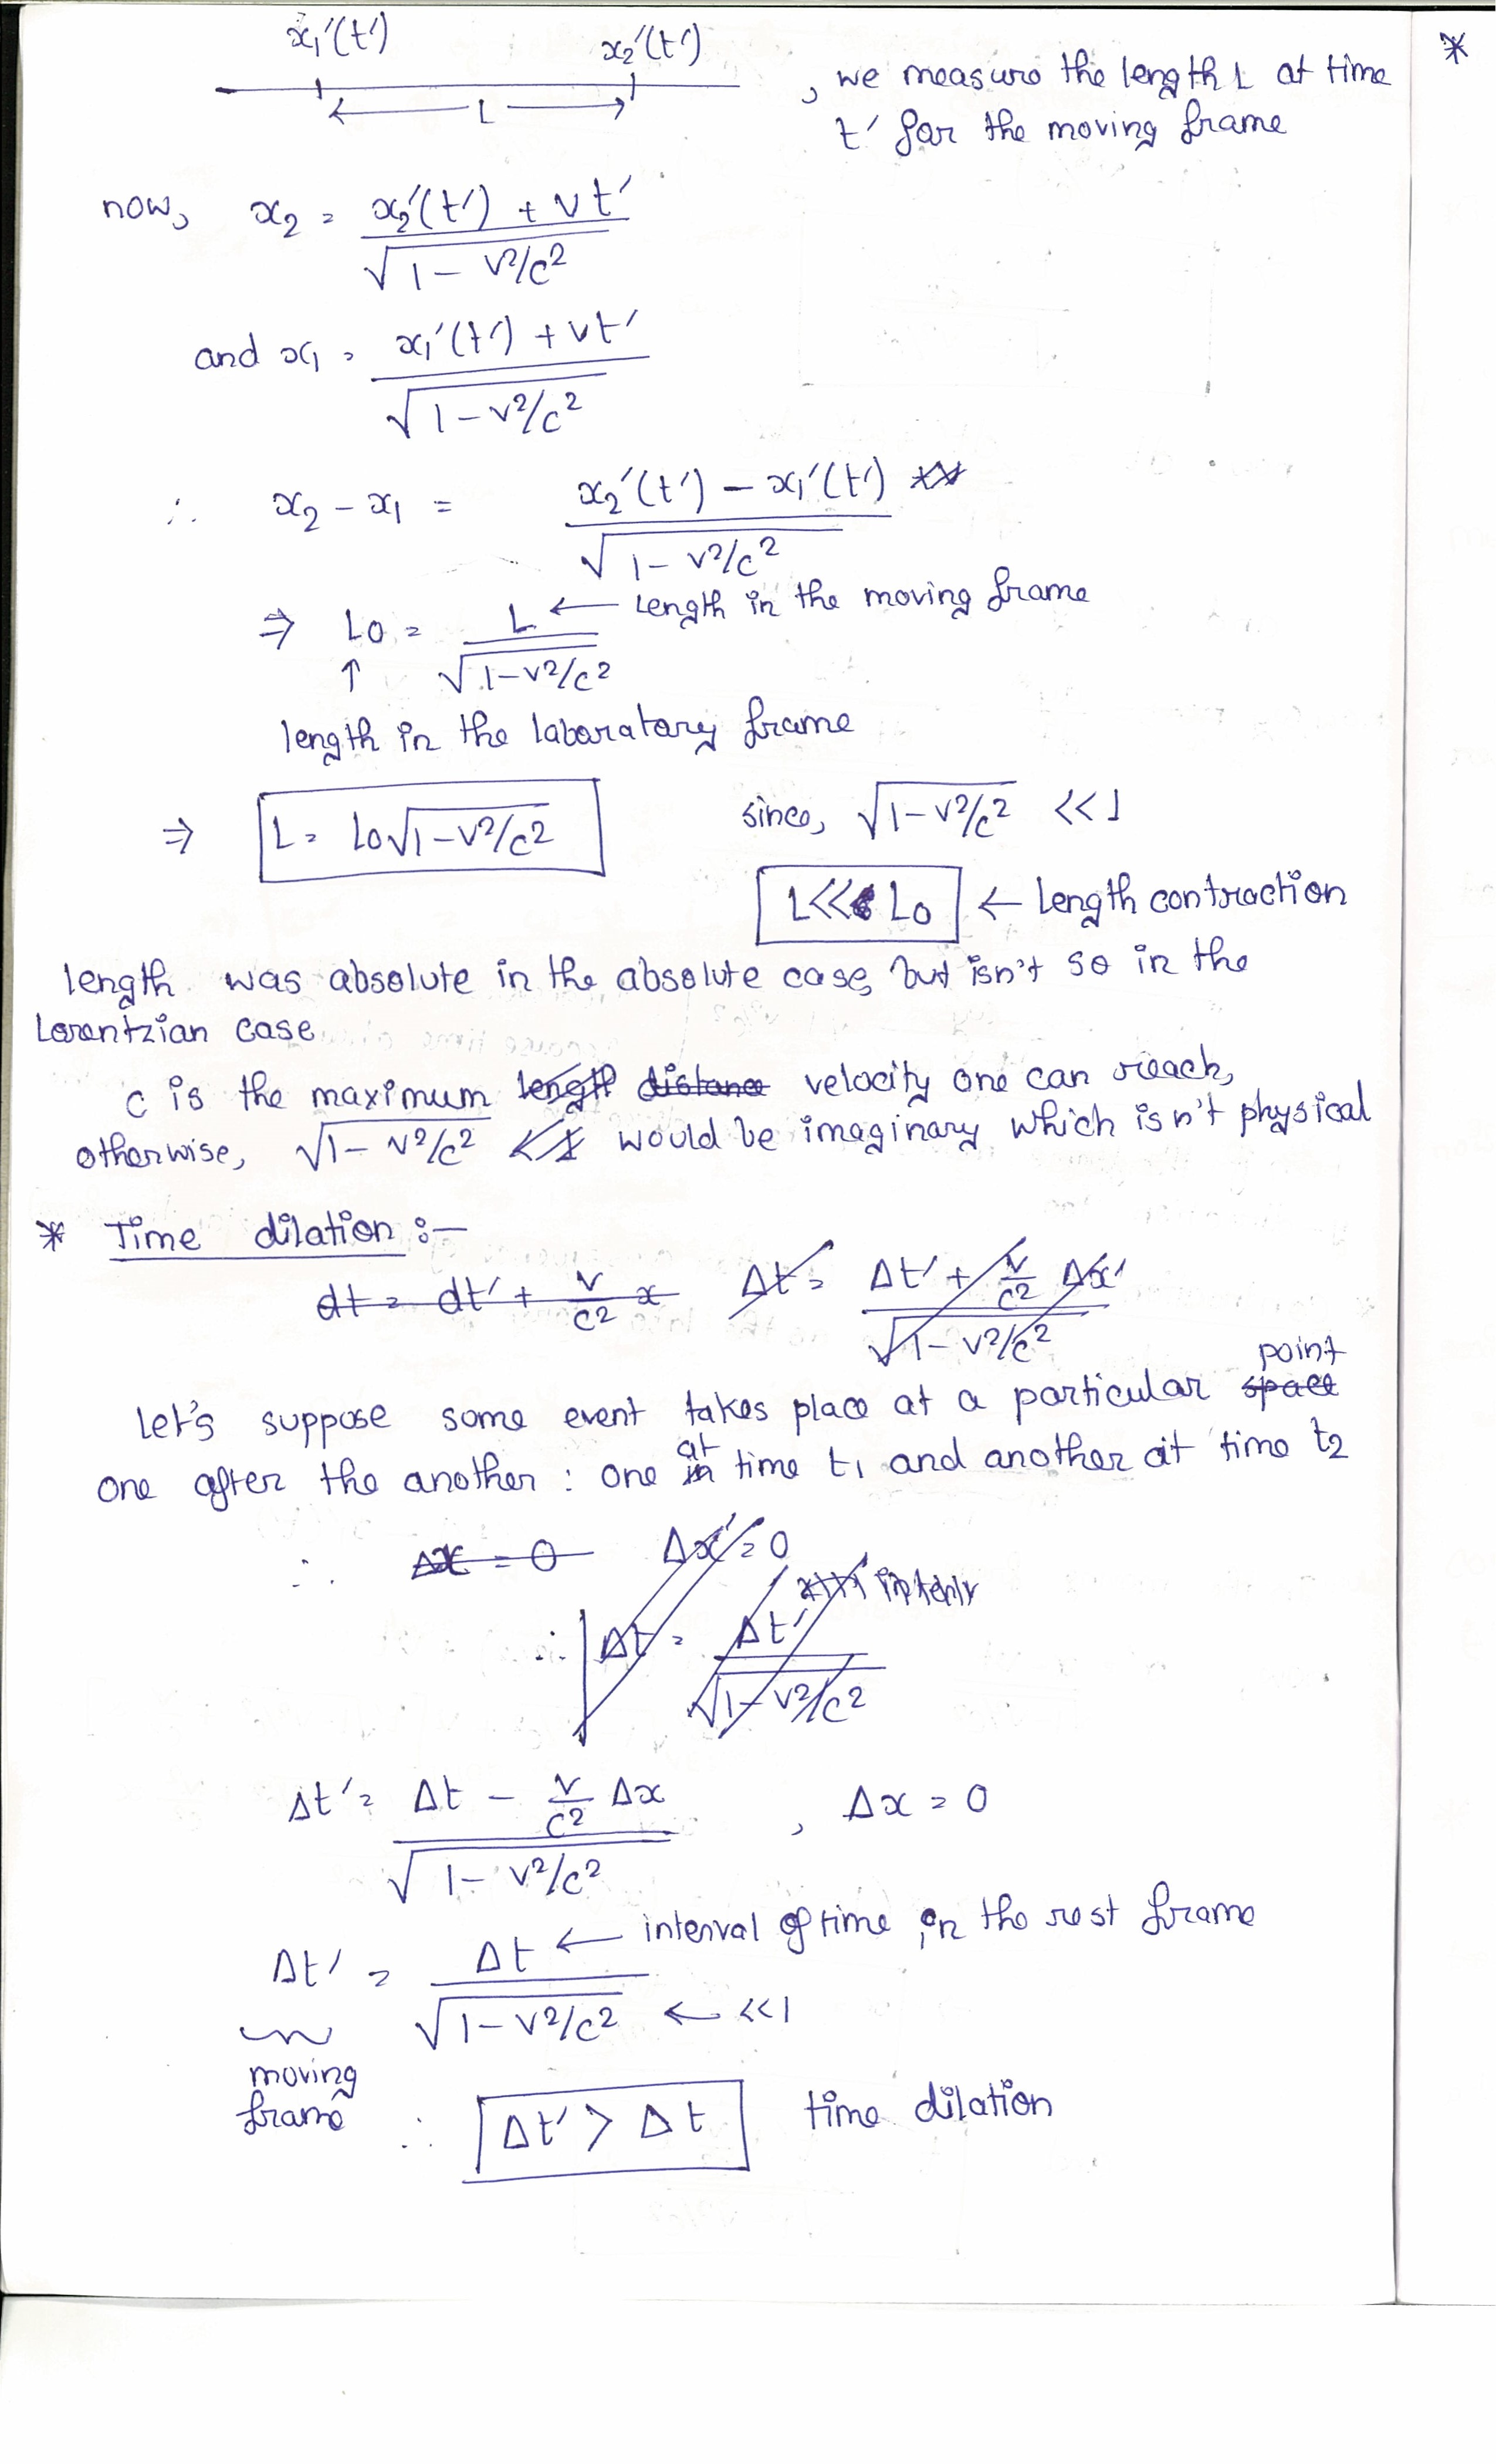 x₁'(t') x₂'(t')
L
, we measure the length L at time *
t' for the moving frame
now, x₂ = x₂'(t') + vt' / √1 - v²/c²
and x₁ = x₁'(t') + vt' / √1 - v²/c²
∴ x₂ - x₁ = x₂'(t') - x₁'(t') / √1 - v²/c²
⇒ L₀ = L / √1 - v²/c² ← Length in the moving frame
↑
length in the laboratory frame
⇒ L = L₀√1 - v²/c² since, √1 - v²/c² <<1
L<< L₀ ← Length contraction
length was absolute in the absolute case, but isn't so in the
Lorentzian case
c is the maximum length distance velocity one can reach,
otherwise, √1 - v²/c² would be imaginary which isn't physical
* Time dilation :-
dt = dt' + v/c² x Δt = Δt' + v/c² Δx' / √1 - v²/c²
point
Let's suppose some event takes place at a particular space
at
one after the another : one in time t₁ and another at time t₂
∴ Δx = 0 Δx' = 0
∴ Δt = Δt' / √1 - v²/c²
Δt' = Δt - v/c² Δx / √1 - v²/c² , Δx = 0
Δt' = Δt / √1 - v²/c² ← interval of time in the rest frame
← <<1
moving
frame
∴ Δt' > Δt time dilation